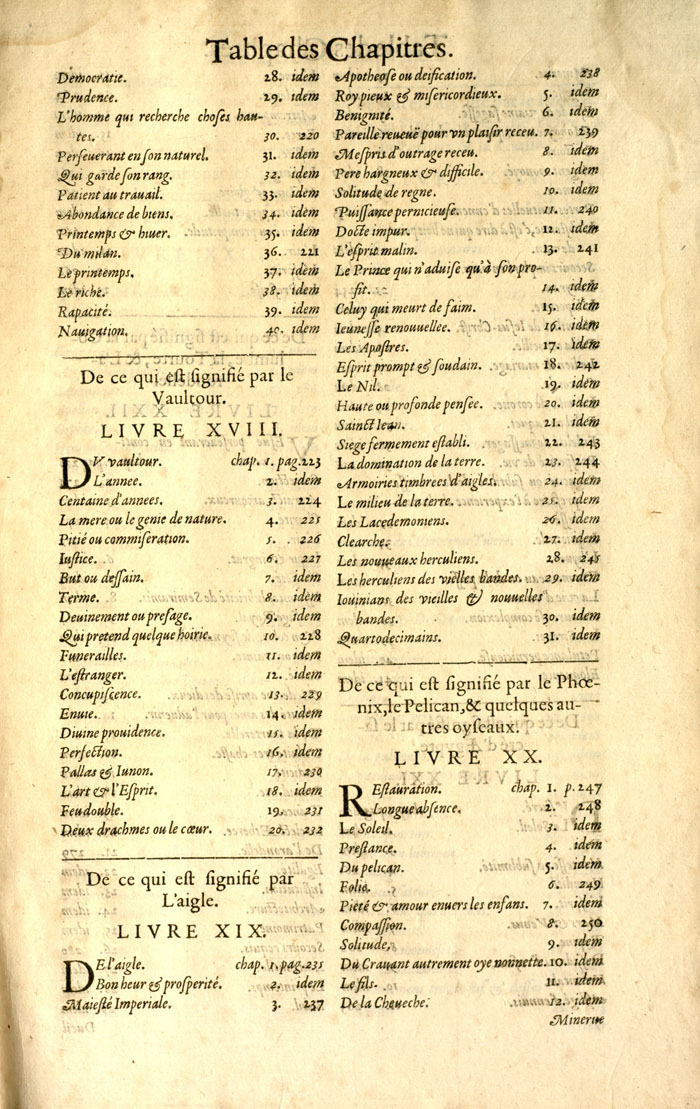 Table des Chapitres.
Democratie. 28. idem
Prudence. 29. idem
L'homme qui recherche choses hau-
tes. 30. 220
Perseuerant en son naturel. 31. idem
Qui garde son rang. 32. idem
Patient au trauail. 33. idem
Abondance de biens. 34. idem
Printemps & hiuer. 35. idem
Du milan. 36. 221
Le printemps. 37. idem
Le riche. 38. idem
Rapacité. 39. idem
Nauigation. 40. idem
De ce qui est signifié par le
Vaultour.
LIVRE XVIII.
DV vaultour. chap. 1. pag. 223
L'annee. 2. idem
Centaine d'annees. 3. 224
La mere ou le genie de nature. 4. 225
Pitié ou commiseration. 5. 226
Iustice. 6. 227
But ou dessain. 7. idem
Terme. 8. idem
Deuinement ou presage. 9. idem
Qui pretend quelque hoirie. 10. 228
Funerailles. 11. idem
L'estranger. 12. idem
Concupiscence. 13. 229
Enuie. 14. idem
Diuine prouidence. 15. idem
Perfection. 16. idem
Pallas & Iunon. 17. 230
L'art & l'Esprit. 18. idem
Feu double. 19. 231
Deux drachmes ou le cœur. 20. 232
De ce qui est signifié par
L'aigle.
LIVRE XIX.
DE l'aigle. chap. 1. pag. 235
Bon heur & prosperité. 2. idem
Maiesté Imperiale. 3. 237
Apotheose ou deification. 4. 238
Roy pieux & misericordieux. 5. idem
Benignité. 6. idem
Pareille reueuë pour vn plaisir receu. 7. 239
Mespris d'outrage receu. 8. idem
Pere hargneux & difficile. 9. idem
Solitude de regne. 10. idem
Puissance pernicieuse. 11. 240
Docte impur. 12. idem
L'esprit malin. 13. 241
Le Prince qui n'aduise qu'à son pro-
fit. 14. idem
Celuy qui meurt de faim. 15. idem
Ieunesse renouuellee. 16. idem
Les Apostres. 17. idem
Esprit prompt & soudain. 18. 242
Le Nil. 19. idem
Haute ou profonde pensee. 20. idem
Sainct Iean. 21. idem
Siege fermement establi. 22. 243
La domination de la terre. 23. 244
Armoiries timbrees d'aigles. 24. idem
Le milieu de la terre. 25. idem
Les Lacedemoniens. 26. idem
Clearche. 27. idem
Les nouueaux herculiens. 28. 245
Les herculiens des vielles bandes. 29. idem
Iouinians des vieilles & nouuelles
bandes. 30. idem
Quartodecimains. 31. idem
De ce qui est signifié par le Phœ-
nix, le Pelican, & quelques au-
tres oyseaux.
LIVRE XX.
REstauration. chap. 1. p. 247
Longue absence. 2. 248
Le Soleil. 3. idem
Prestance. 4. idem
Du pelican. 5. idem
Folie. 6. 249
Pieté & amour enuers les enfans. 7. idem
Compassion. 8. 250
Solitude, 9. idem
Du Crauant autrement oye nonnette. 10. idem
Le fils. 11. idem
De la Cheueche. 12. idem
Minerue